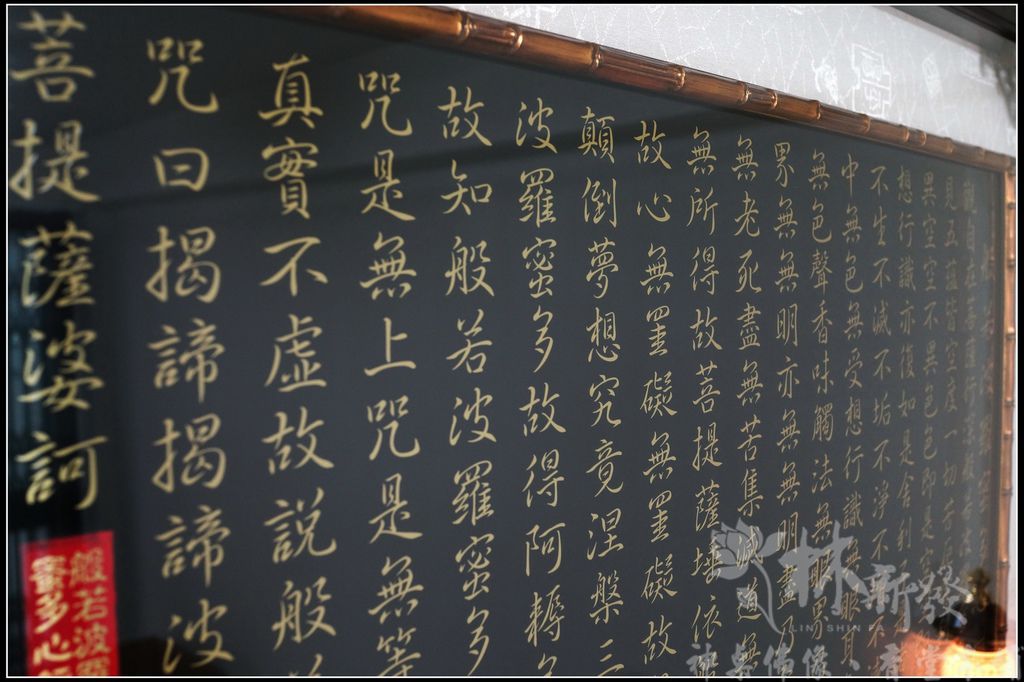 見五蘊皆空度一切苦厄
異空空不異色色即是空
想行識亦復如是舍利
不生不滅不垢不淨不
中無色無受想行識無眼耳
無色聲香味觸法無眼界
界無無明亦無無明盡
無老死盡無苦集滅道無
無所得故菩提薩埵依般
故心無罣礙無罣礙故
顛倒夢想究竟涅槃三
波羅蜜多故得阿耨多
故知般若波羅蜜多
咒是無上咒是無等
真實不虛故說般
咒曰揭諦揭諦波
菩提薩婆訶
般若波羅
蜜多心經
林新發
LIN SHIN FA